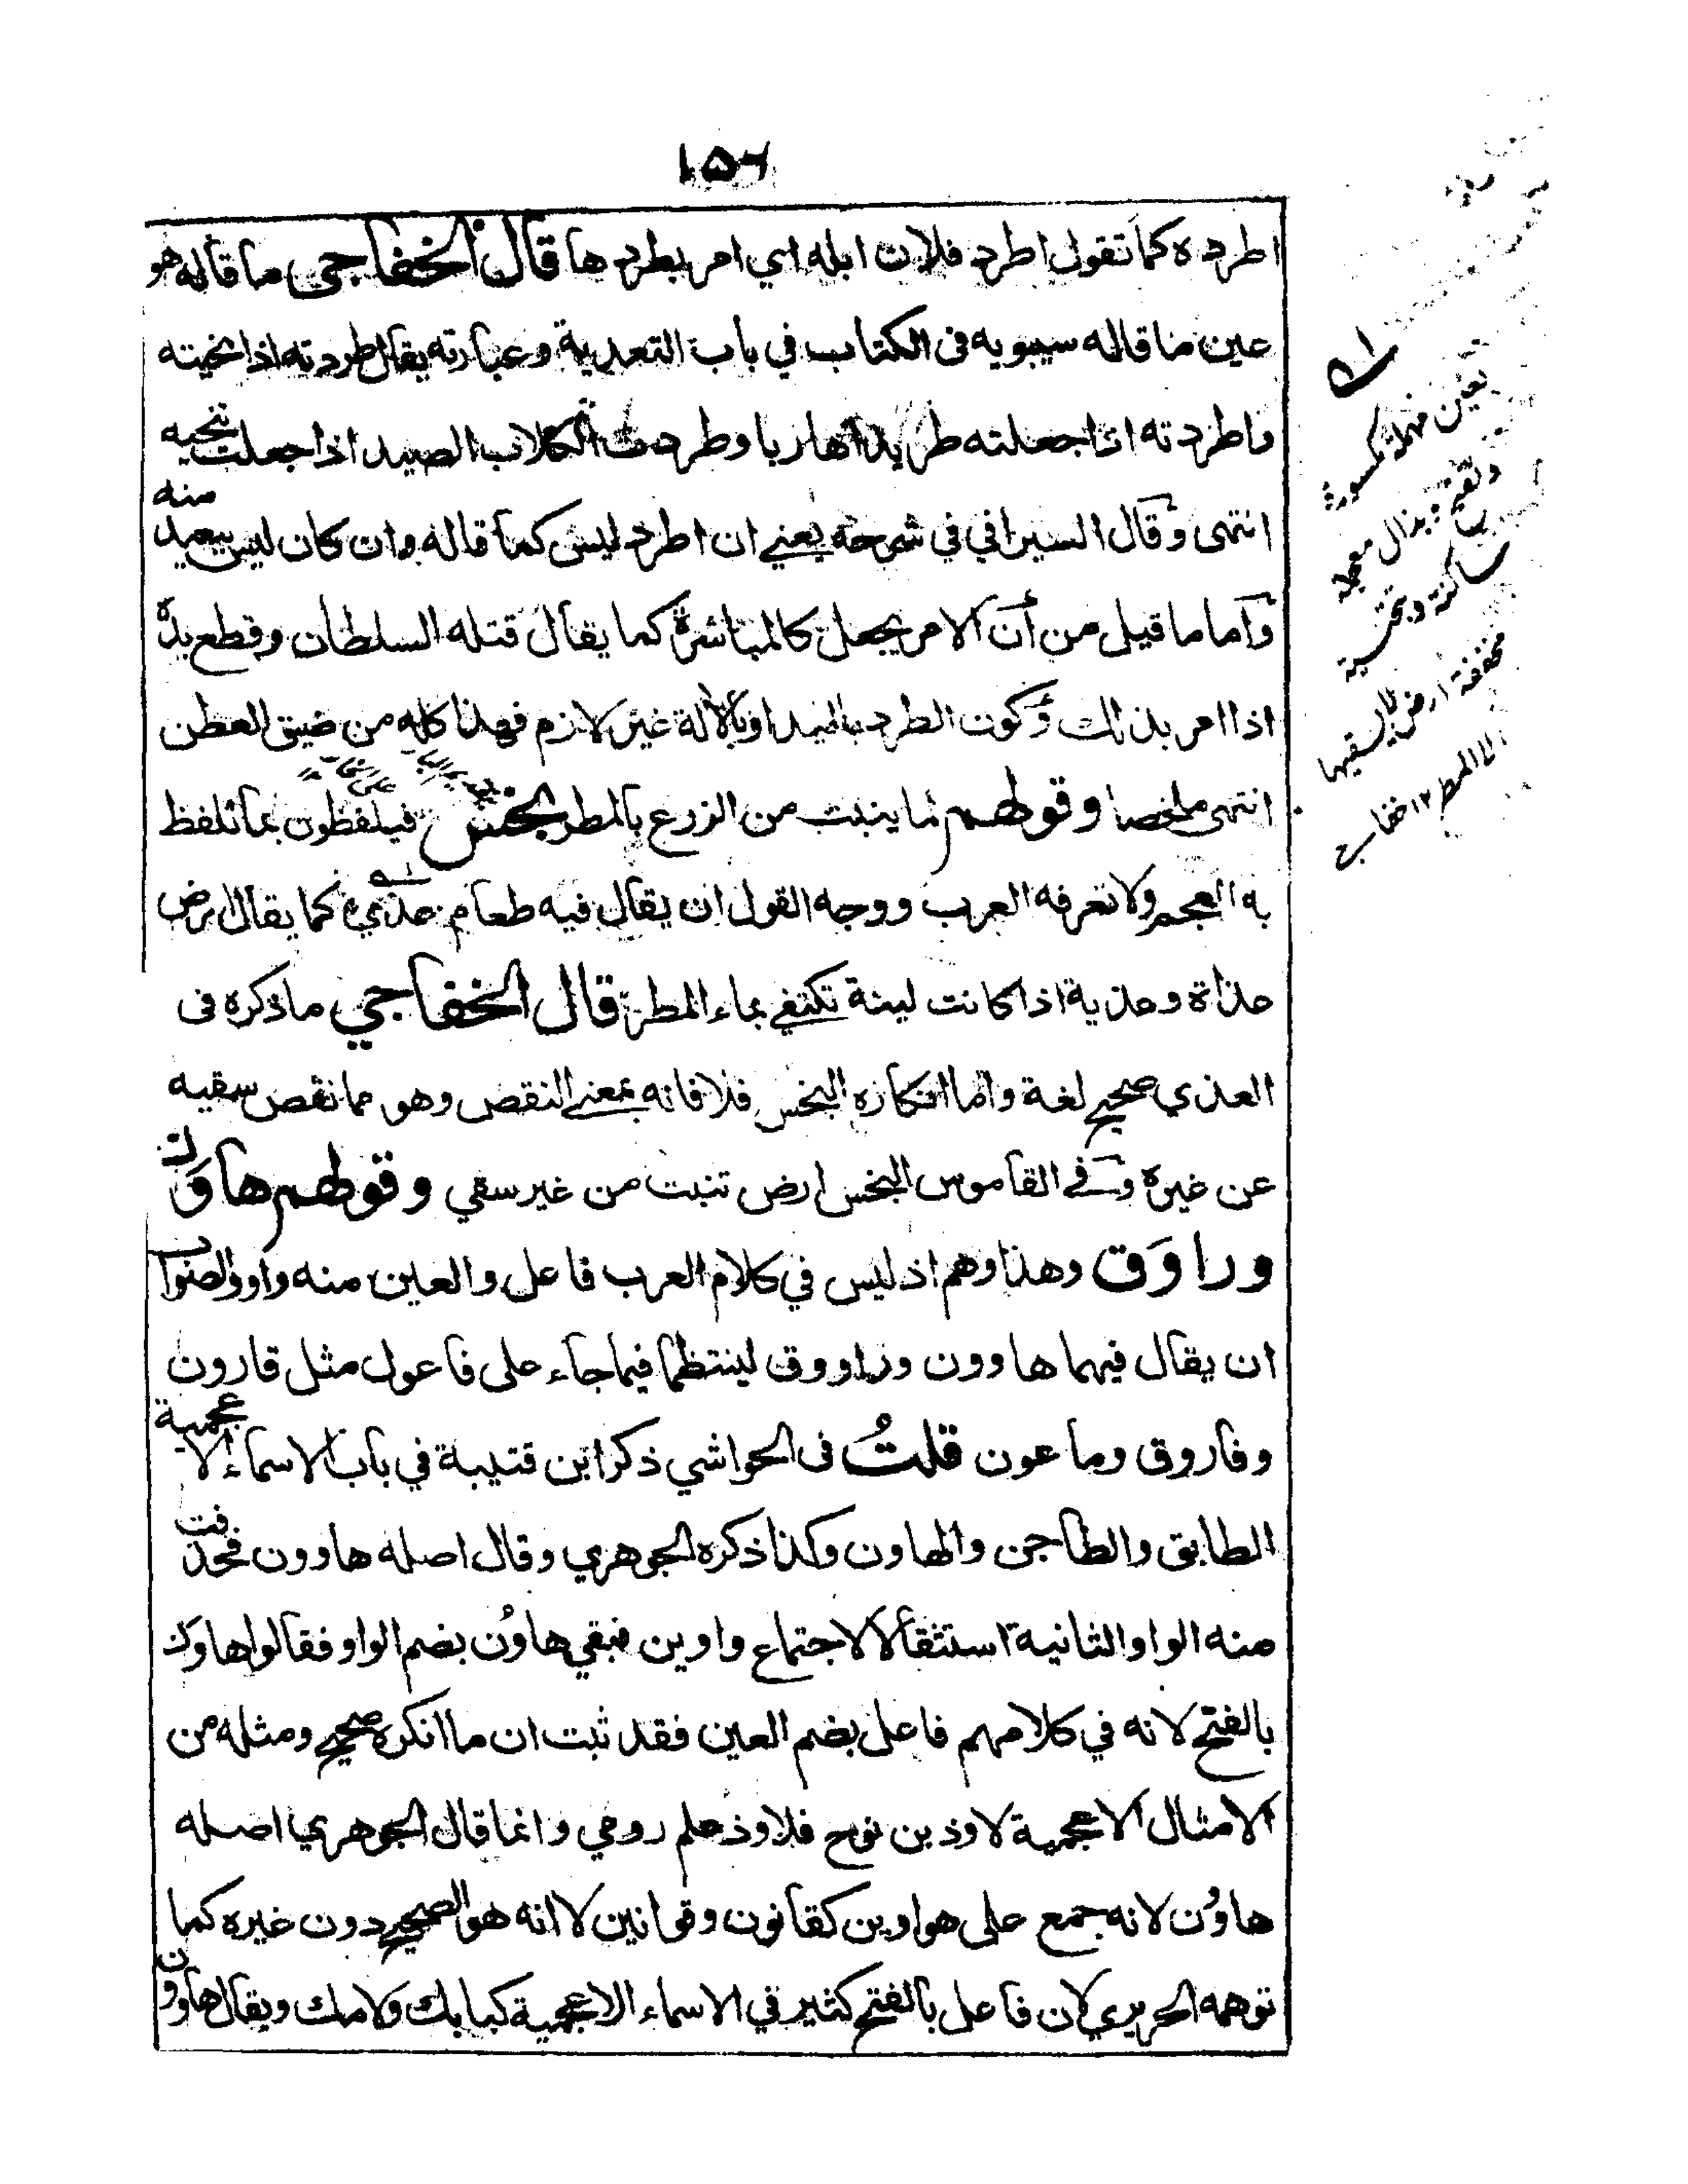 ١٥٦
اطرده كما تقول اطرد فلان ابله اي امر بطردها قال الخفاجي ما قاله هو
عين ما قاله سيبويه في الكتاب في باب التعدية وعبارته يقال طردته اذا نحيته
واطردته اذا جعلته طريدا هاربا وطردت الكلاب الصيد اذا جعلت تنحيه
انتهى وقال السيرافي في شرحه يعني ان اطرد ليس كما قاله وان كان ليس ببعيد منه
وأما ما قيل من أن الامر يجعل كالمباشرة كما يقال قتله السلطان وقطع يده
اذا امر بذلك وكون الطرد باليد او بالآلة غير لازم فهذا كله من ضيق العطن
انتهى ملخصا وقولهم لما ينبت من الزرع بالمطر البخس فيلفظون بما تلفظ
به العجم ولا تعرفه العرب ووجه القول ان يقال فيه طعام عذي كما يقال ارض
عذاة وعذية اذا كانت لينة تكتفي بماء المطر قال الخفاجي ما ذكره في
العذي صحيح لغة واما انكاره البخس فلا فانه بمعنى النقص وهو مما نقص سقيه
عن غيره وفي القاموس البخس ارض تنبت من غير سقي وقولهم هاوَن
وراوَق وهذا وهم اذ ليس في كلام العرب فاعل والعين منه واو والصواب
ان يقال فيهما هاوون وراووق لينتظما فيما جاء على فاعول مثل قارون
وفاروق وماعون قلتُ في الحواشي ذكر ابن قتيبة في باب الاسماء الاعجمية
الطابق والطاجن والهاون وكذا ذكره الجوهري وقال اصله هاوون فحذفت
منه الواو الثانية استثقالا لاجتماع واوين فبقي هاوُن بضم الواو فقالوا هاون
بالفتح لانه في كلامهم فاعل بضم العين فقد ثبت ان ما انكره صحيح ومثله من
الامثال الاعجمية لاوذ بن نوح فلاوذ علم رومي وانما قال الجوهري اصله
هاوُن لانه جمع على هواوين كقانون وقوانين لا انه هو الصحيح دون غيره كما
توهمه الحريري لان فاعل بالفتح كثير في الاسماء الاعجمية كبابك ولامك ويقال هاوون
بعين مهملة مكسورة
وتفتح وبذال معجمة
ساكنة وتحتية
مخففة ارض لا يسقيها
الا المطر ١٢ خفاجي